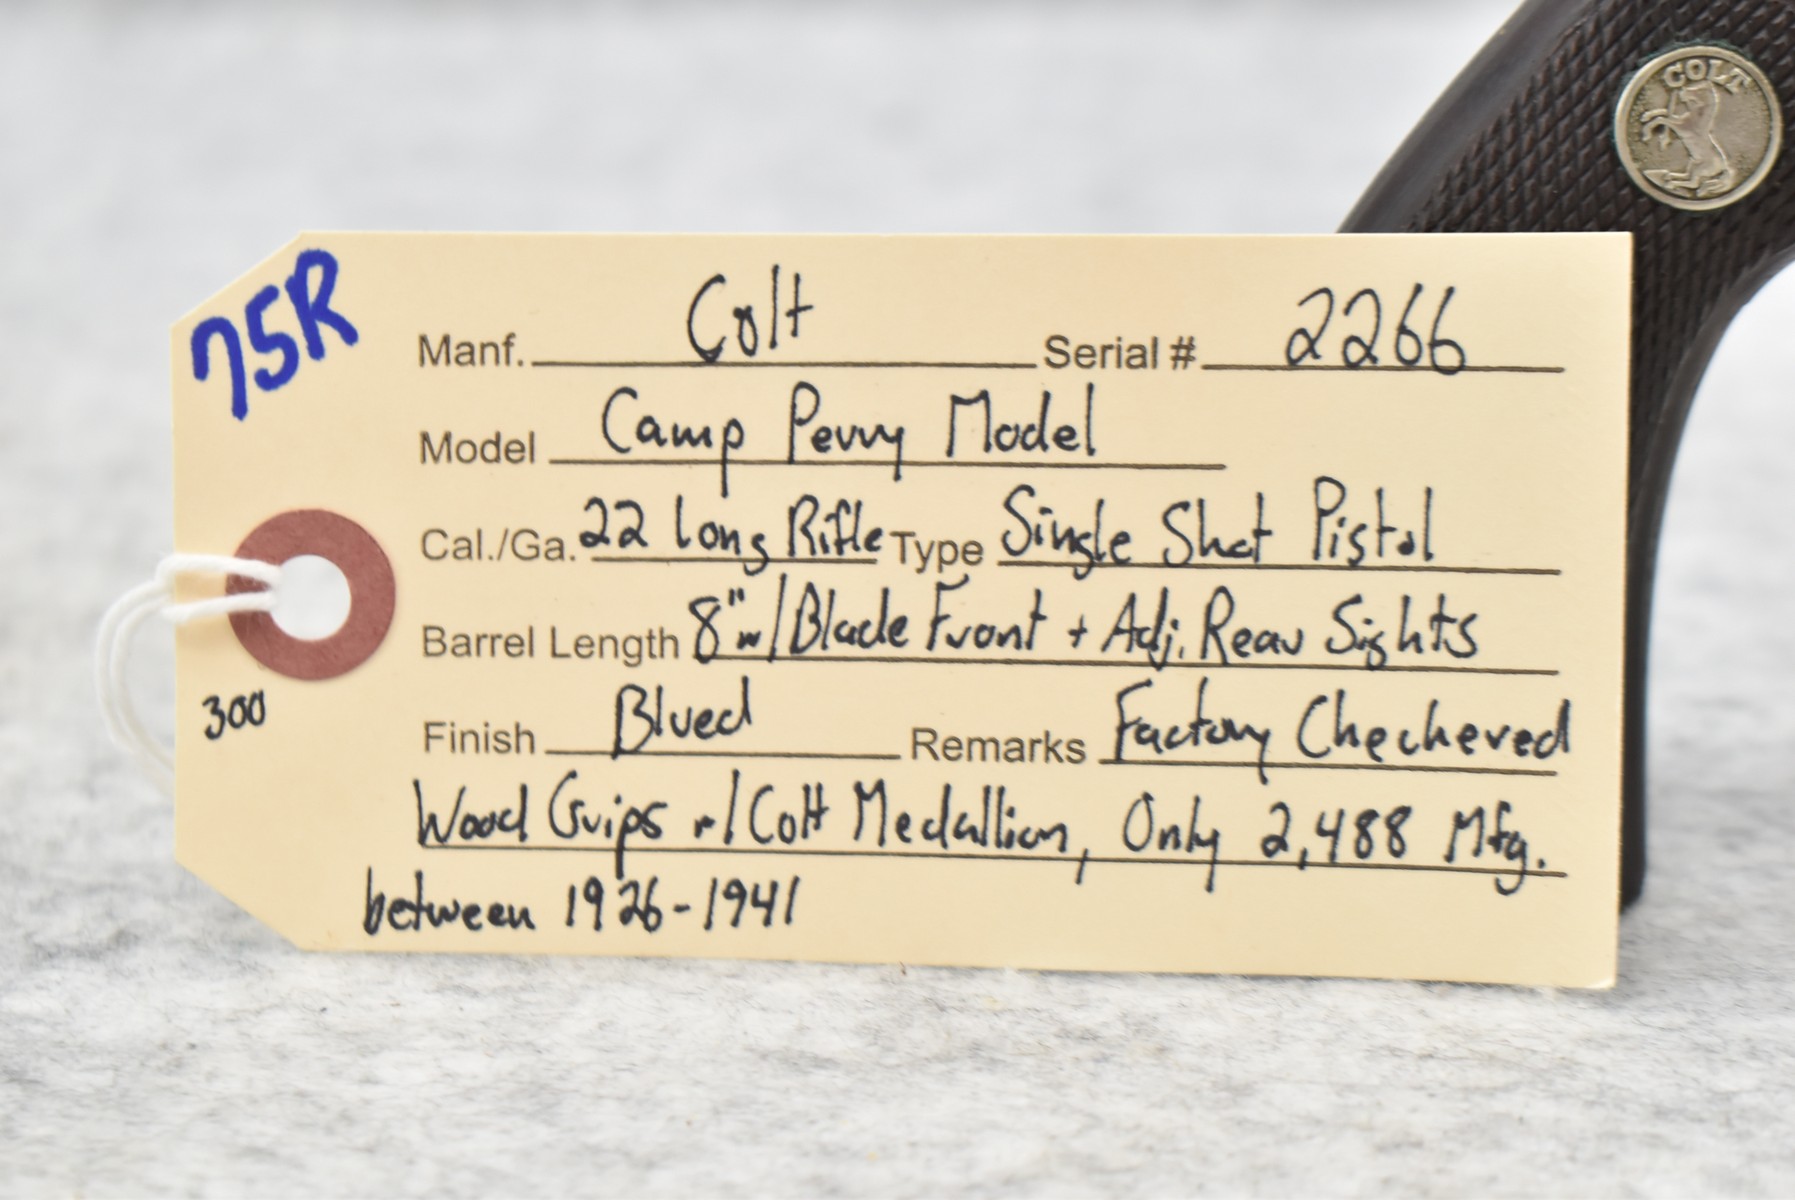 COLT
75R
Manf. Colt Serial # 2266
Model Camp Perry Model
Cal./Ga. 22 Long Rifle Type Single Shot Pistol
Barrel Length 8" w/ Blade Front + Adj. Rear Sights
300
Finish Blued Remarks Factory Checkered
Wood Grips w/ Colt Medallion, Only 2,488 Mfg.
between 1926-1941